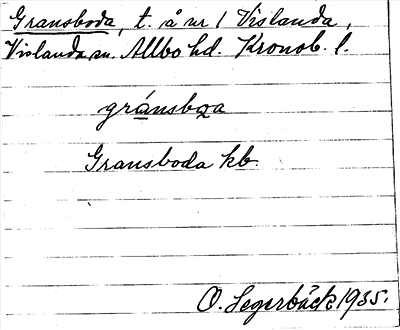 Gransboda, t. å nr 1 Vislanda,
Vislanda sn. Allbo hd. Kronob. l.
gránsbωa
Gransboda kb
O. Segerbäck 1935.